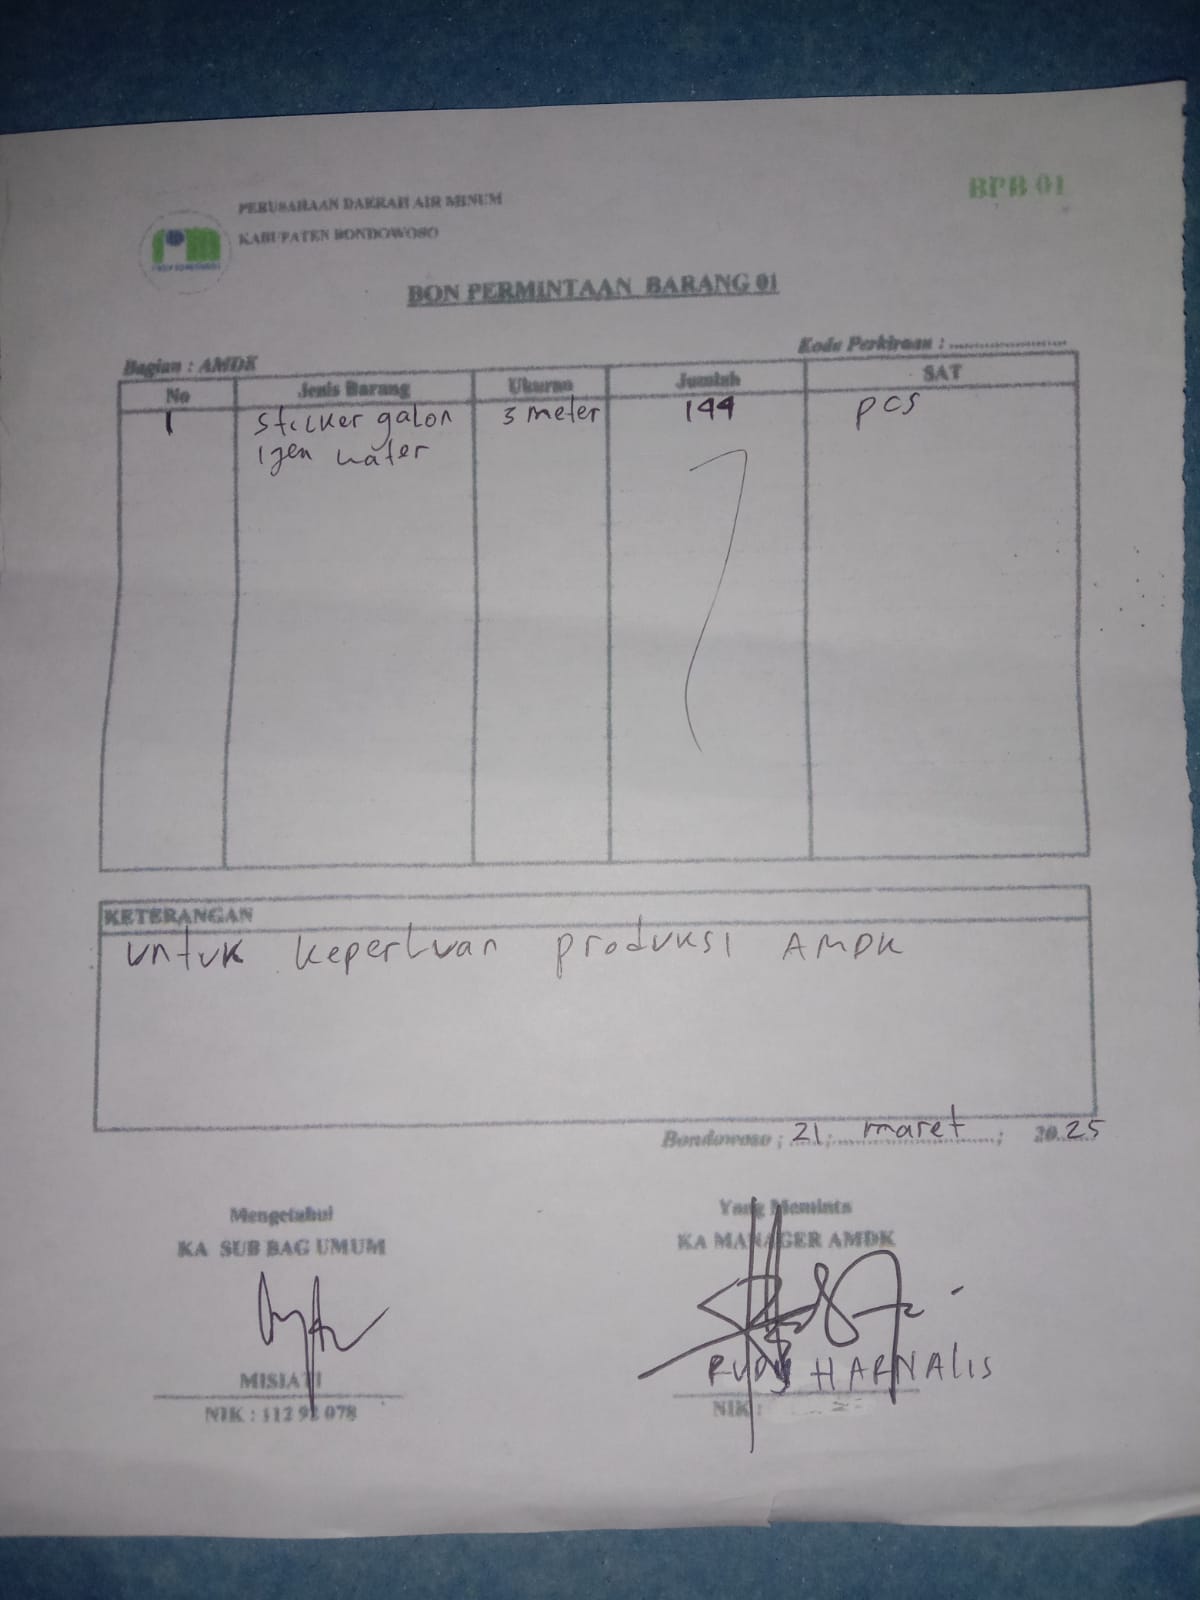 BPB 01
PERUSAHAAN DAERAH AIR MINUM
KABUPATEN BONDOWOSO
BON PERMINTAAN BARANG 01
Bagian : AMDK
Kode Perkiraan : ........................
No Jenis Barang Ukuran Jumlah SAT
1 Sticker galon 3 meter 144 pcs
Ijen water
KETERANGAN
Untuk keperluan produksi AMDK
Bondowoso ; 21 ; maret ; 2025
Mengetahui
KA SUB BAG UMUM
Yang Meminta
KA MANAGER AMDK
MISIATI
NIK : 112 92 078
RUDY HARNALIS
NIK :